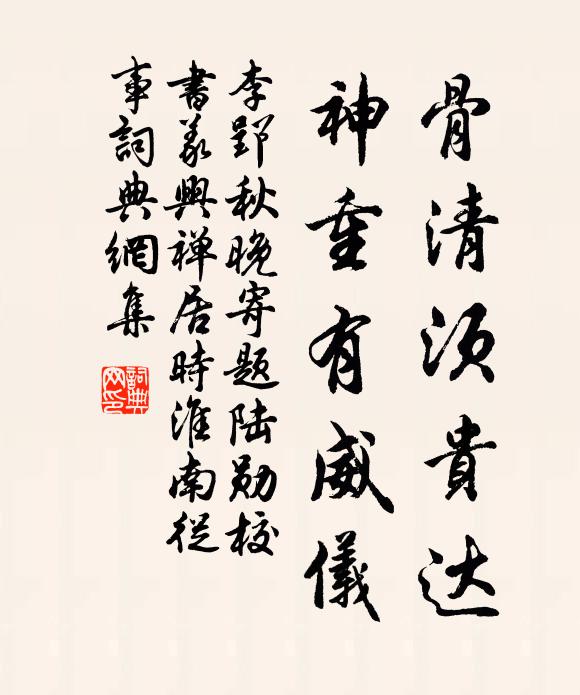 骨清須貴达
神重有威儀
李郢秋晚寄題陸勛校
書義興禅居時淮南從
事詞典網集
詞典
网印